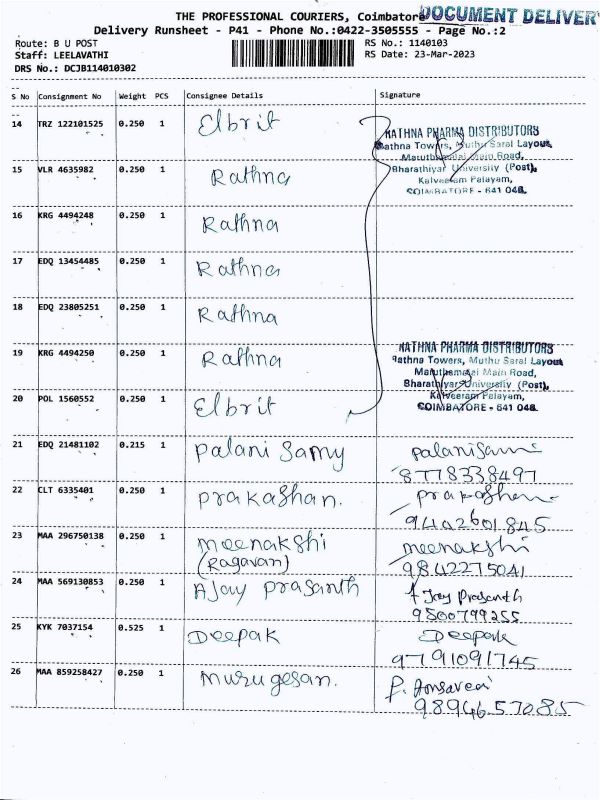 THE PROFESSIONAL COURIERS, Coimbatore
DOCUMENT DELIVER
Delivery Runsheet - P41 - Phone No.:0422-3505555 - Page No.:2
Route: B U POST
RS No.: 1140103
Staff: LEELAVATHI
RS Date: 23-Mar-2023
DRS No.: DCJB114010302
S No Consignment No Weight PCS Consignee Details Signature
14 TRZ 122101525 0.250 1 Elbrit
RATHNA PHARMA DISTRIBUTORS
Rathna Towers, Muthu Saral Layout,
Maruthamalai Main Road,
Bharathiyar University (Post),
Kalveeram Palayam,
COIMBATORE - 641 046.
15 VLR 4635982 0.250 1 Rathna
16 KRG 4494248 0.250 1 Rathna
17 EDQ 13454485 0.250 1 Rathna
18 EDQ 23805251 0.250 1 Rathna
19 KRG 4494250 0.250 1 Rathna
RATHNA PHARMA DISTRIBUTORS
Rathna Towers, Muthu Saral Layout
Maruthamalai Main Road,
Bharathiyar University (Post),
Kalveeram Palayam,
COIMBATORE - 641 046.
20 POL 1560552 0.250 1 Elbrit
21 EDQ 21481102 0.215 1 Palani Samy palanisami
8778338497
22 CLT 6335401 0.250 1 prakashan. prakashan
9442601845
23 MAA 296750138 0.250 1 meenakshi meenakshi
(Ragavan) 9842275041
24 MAA 569130853 0.250 1 AJay prasanth AJay Prasanth
9500799255
25 KYK 7037154 0.525 1 Deepak Deepak
9791091745
26 MAA 859258427 0.250 1 murugesan. P.
9894657085